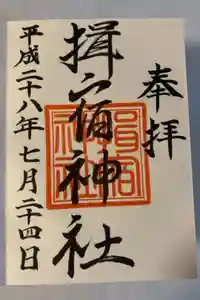 奉拝
揖宿神社
平成二十八年七月二十四日